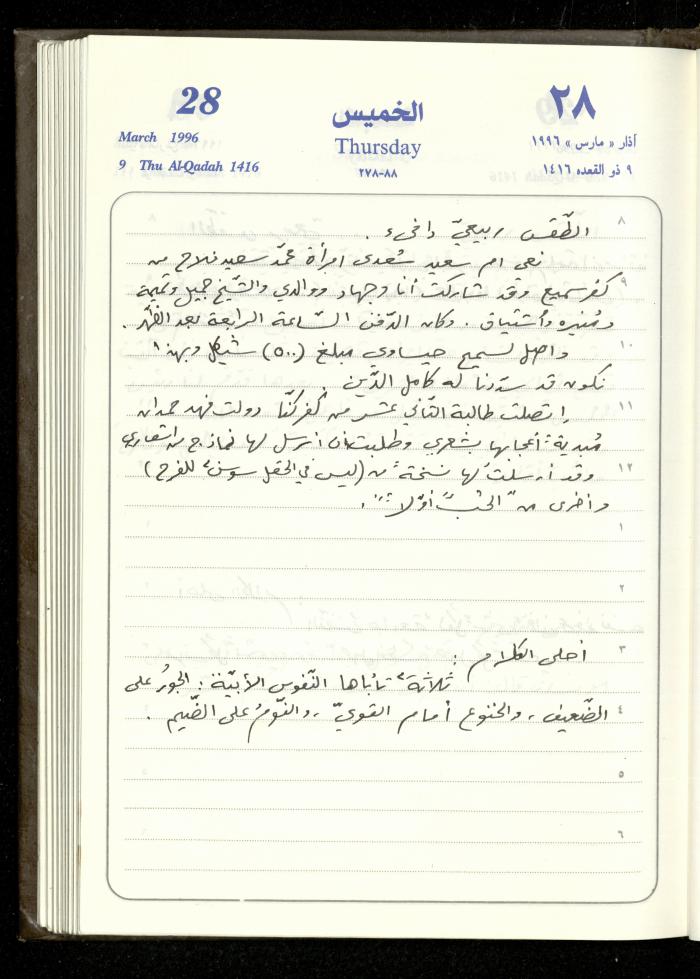 28
March 1996
9 Thu Al-Qadah 1416
الخميس
Thursday
٢٧٨-٨٨
٢٨
آذار « مارس » ١٩٩٦
٩ ذو القعده ١٤١٦
٨
الطّقس ربيعيّ دافىء .
نعي ام سعيد سُعدى امرأة محمّد سعيد فلاح من
٩
كفرسميع وقد شاركت أنا وجهاد ووالدي والشّيخ جميل وتميمة
ومُنيره وأشتياق . وكان الدّفن السّاعة الرابعة بعد الظّهر .
١٠
واصل لسميح حيساوي مبلغ (٥٠٠) شيكل وبهذا
نكون قد سدّدنا له كامل الدّين .
١١
إتصلت طالبة الثّاني عشر من كُفركنّا دولت فهد حمدان
مُبدية أعجابها بشعري وطلبت أن أرسل لها نماذج من أشعاري
١٢
وقد أرسلتُ لها نسخة من (ليس في الحقل سوسنٌ للفرح)
وأخرى من "الحُبّ أوّلاً" .
١
٢
٣
أحلى الكلام :
ثلاثة تأباها النّفوس الأبيّة : الجورُ على
٤
الضّعيف ، والخنوع أمام القويّ ، والنّومُ على الضّيم .
٥
٦